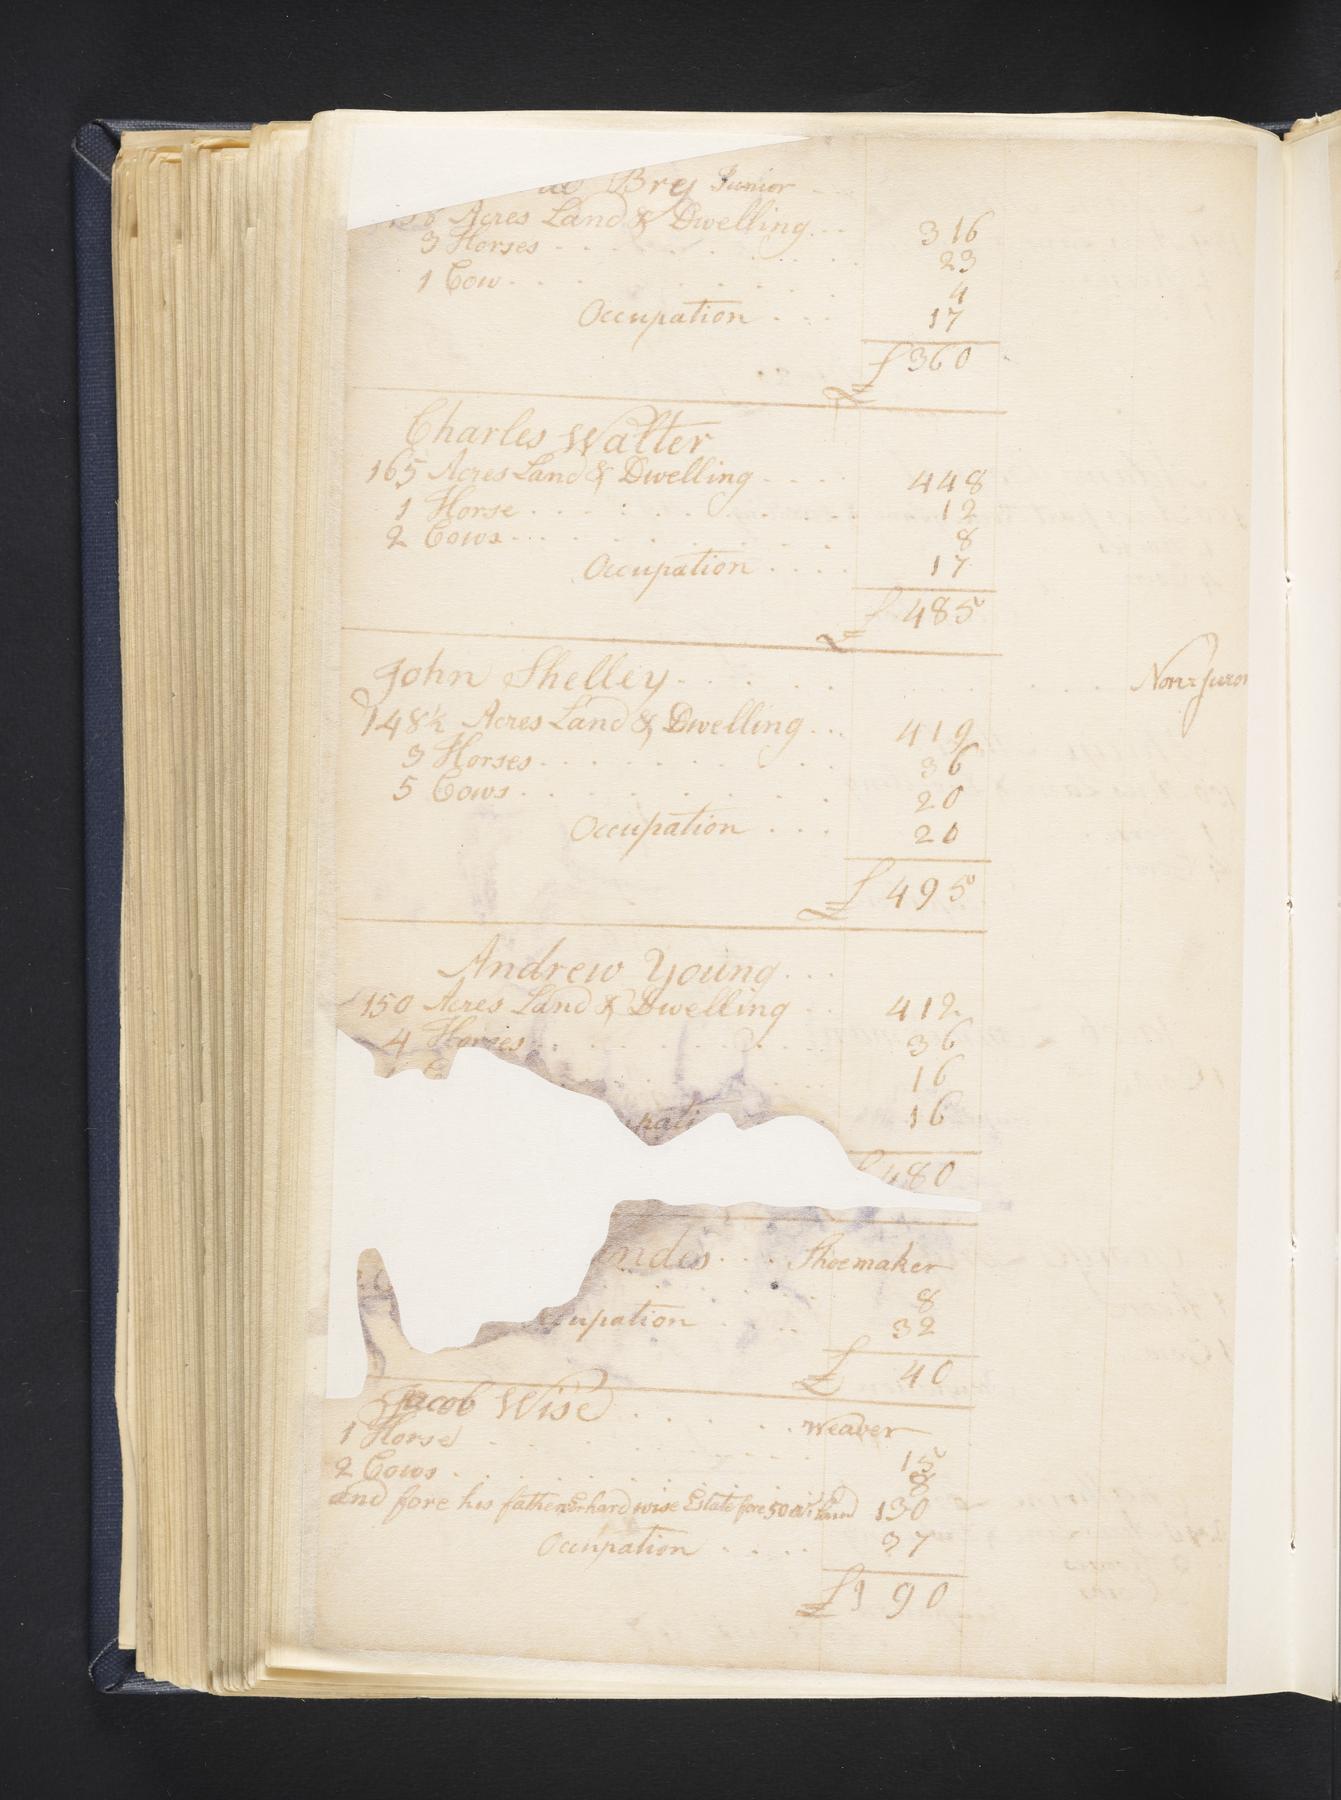 Bry Junior
Acres Land & Dwelling... 316
3 Horses 23
1 Cow 4
Occupation 17
£360
Charles Walter
165 Acres Land & Dwelling 448
1 Horse 12
2 Cows 8
Occupation 17
£ 485
John Shelley Non-Juror
148½ Acres Land & Dwelling 419
3 Horses 36
5 Cows 20
Occupation 20
£ 495
Andrew Young
150 Acres Land & Dwelling 412
4 Horses 36
16
pati 16
£480
ndes Shoemaker
8
upation 32
£ 40
Jacob Wise Weaver
1 Horse 15
2 Cows 8
and fore his father Erhard wise Estate fore 50 ars land 130
Occupation 37
£190